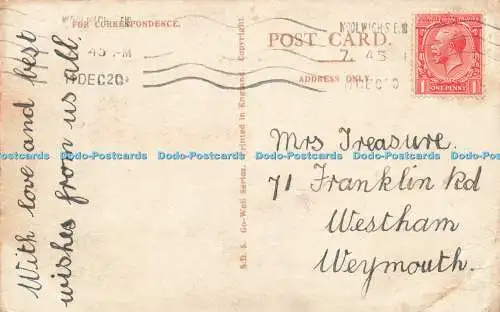 FOR CORRESPONDENCE.
With love and best
wishes from us all.
S.D.S. Go-Well Series. Printed in England. Copyright
POST CARD.
ADDRESS ONLY
WOOLWICH S.E.18
7. 45
DEC 20
45 PM
DEC 20
ONE PENNY
Mrs Treasure.
71 Franklin Rd
Westham
Weymouth.
Dodo-Postcards Dodo-Postcards Dodo-Postcards Dodo-Postcards Dodo-Postcards Dodo-Postcards